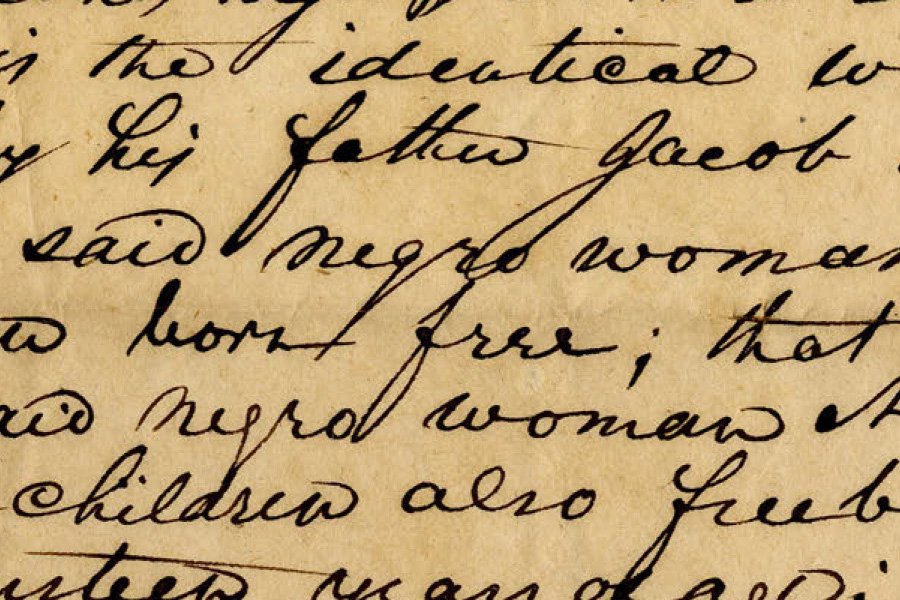 is the identical w
by his father Jacob
said negro woman
born free; that
said negro woman
children also free b
years of age